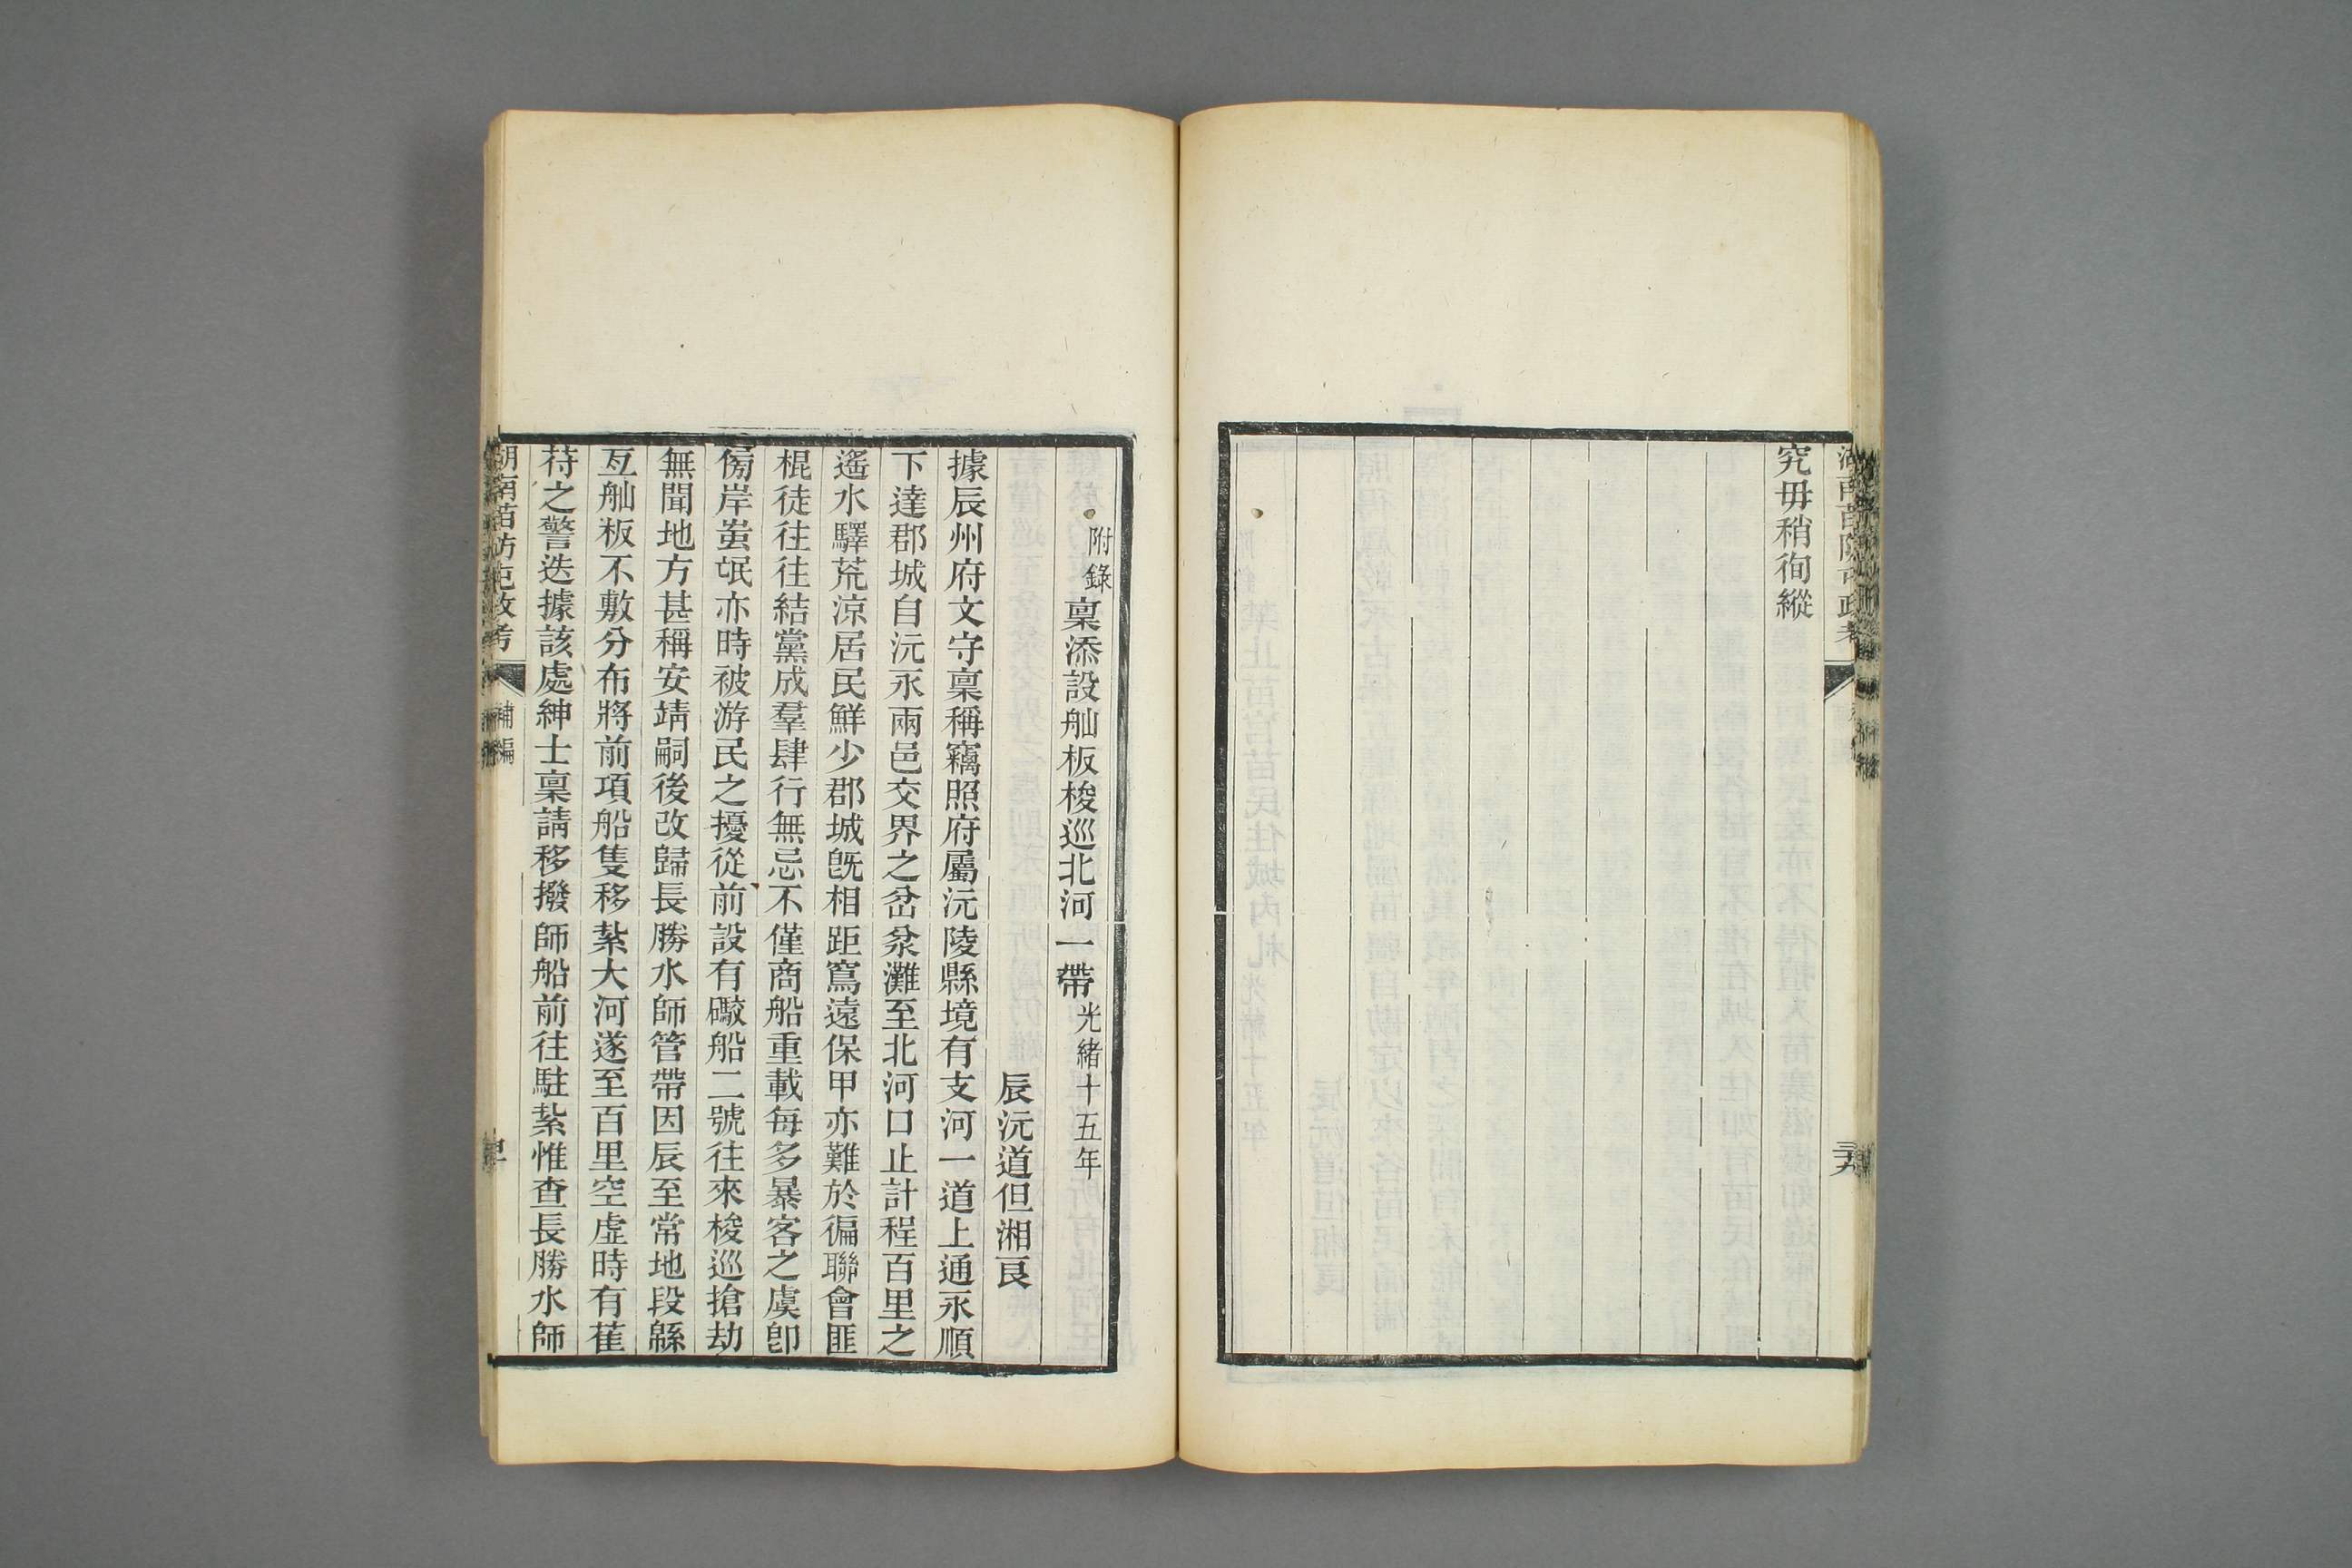 究毋稍徇縱
附錄稟添設舢板梭巡北河一帶光緒十五年
辰沅道但湘良
據辰州府文守稟稱竊照府屬沅陵縣境有支河一道上通永順
下達郡城自沅永兩邑交界之岔汆灘至北河口止計程百里之
遙水驛荒涼居民鮮少郡城旣相距窵遠保甲亦難於徧聯會匪
棍徒往往結黨成羣肆行無忌不僅商船重載每多暴客之虞卽
傍岸蚩氓亦時被游民之擾從前設有礮船二號往來梭巡搶劫
無聞地方甚稱安靖嗣後改歸長勝水師管帶因辰至常地段緜
亙舢板不敷分布將前項船隻移紮大河遂至百里空虛時有萑
苻之警迭據該處紳士稟請移撥師船前往駐紮惟查長勝水師
湖南苗防屯政考
補編